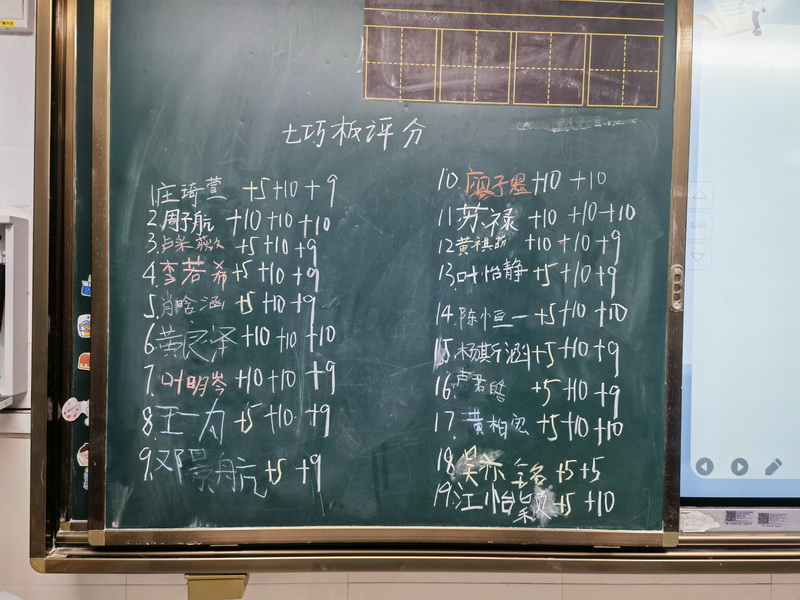 七巧板评分
1.庄琦萱 +5+10+9
2.周子航 +10+10+10
3.卢 +5+10+9
4.李若希+5+10+9
5.肖晗涵+5+10+9
6.黄良泽+10+10+10
7.叶明岑+10+10+9
8.王一为+5+10+9
9.邓景航+5+9
10.廖子煜+10+10
11苏禄+10+10+10
12黄祺 +10+10+9
13.叶怡静+5+10+9
14.陈恒一+5+10+10
15.杨斯涵+5+10+9
16.卢君 +5+10+9
17.黄柏宏+5+10+10
18.吴亦铭+5+5
19.江怡颖+5+10